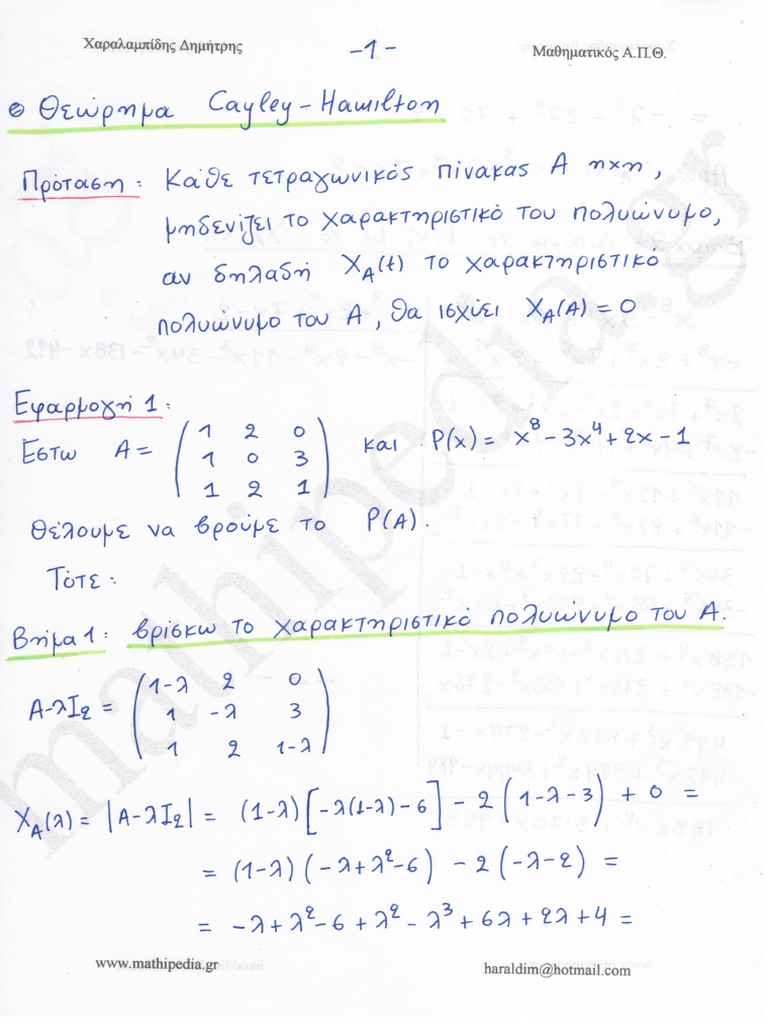 Χαραλαμπίδης Δημήτρης
-1-
Μαθηματικός Α.Π.Θ.
Θεώρημα Cayley-Hamilton
Πρόταση: Κάθε τετραγωνικός πίνακας A n×n,
μηδενίζει το χαρακτηριστικό του πολυώνυμο,
αν δηλαδή X_A(t) το χαρακτηριστικό
πολυώνυμο του A, θα ισχύει X_A(A)=0
Εφαρμογή 1:
Έστω A = (1 2 0 / 1 0 3 / 1 2 1) και P(x) = x^8 - 3x^4 + 2x - 1
Θέλουμε να βρούμε το P(A).
Τότε:
Βήμα 1: βρίσκω το χαρακτηριστικό πολυώνυμο του A.
A-λI_2 = (1-λ 2 0 / 1 -λ 3 / 1 2 1-λ)
X_A(λ) = |A-λI_2| = (1-λ)[-λ(1-λ)-6] - 2(1-λ-3) + 0 =
= (1-λ)(-λ+λ^2-6) - 2(-λ-2) =
= -λ+λ^2-6+λ^2-λ^3+6λ+2λ+4 =
www.mathipedia.gr
haraldim@hotmail.com
mathipedia.gr